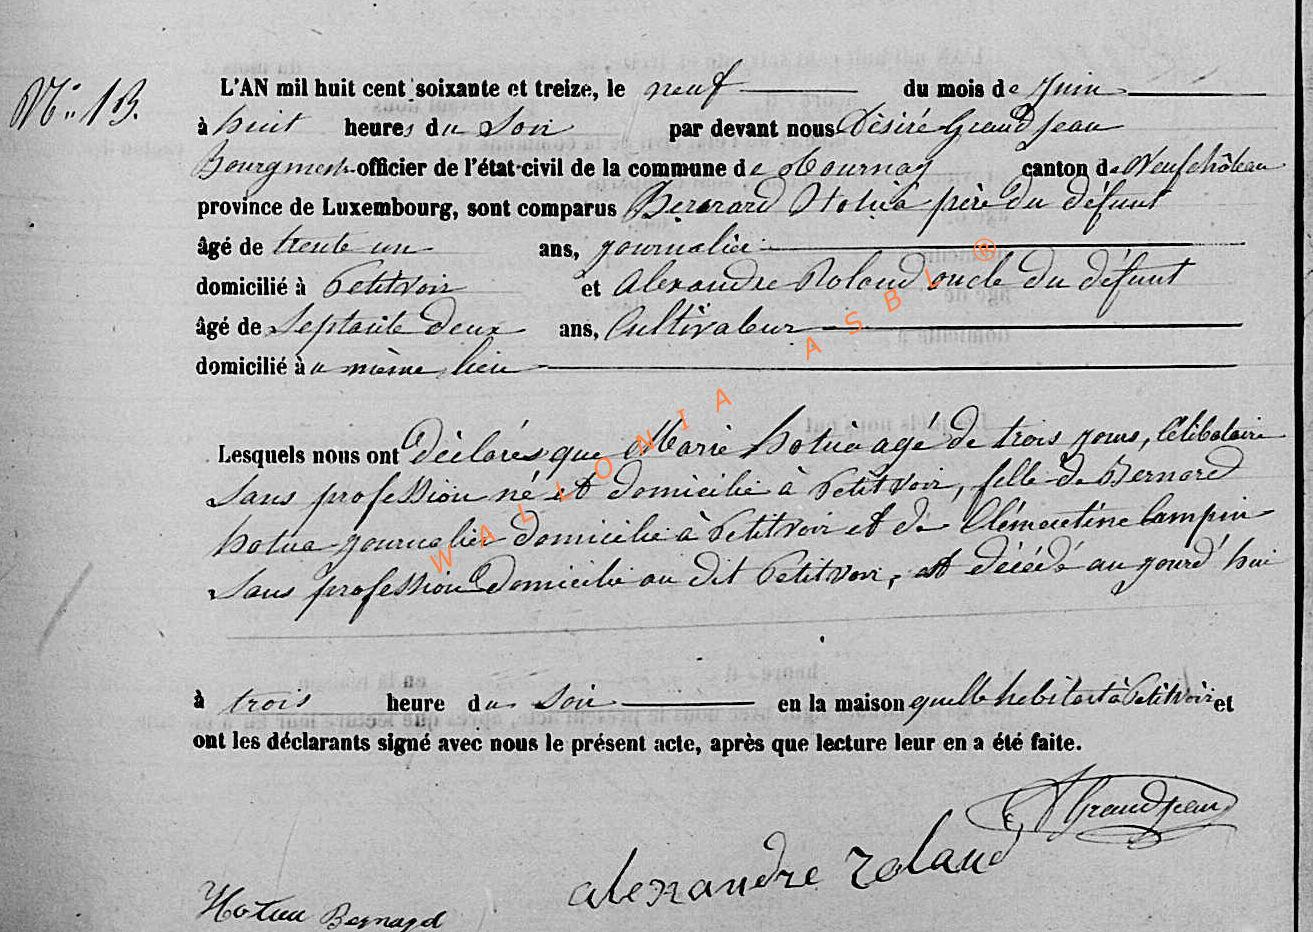 N° 13.
L'AN mil huit cent soixante et treize, le neuf du mois de Juin
à huit heures du Soir par devant nous Désiré Grandjean
Bourgmest. officier de l'état-civil de la commune de Tournay canton de Neufchâteau
province de Luxembourg, sont comparus Bernard Hotua père du défunt
âgé de trente un ans, journalier
domicilié à Petitvoir et Alexandre Roland oncle du défunt
âgé de Septante deux ans, Cultivateur
domicilié au même lieu
Lesquels nous ont déclarés que Marie hotua agé de trois jours, Célibataire
Sans profession né et domicilié à Petitvoir, fille de Bernard
hotua journalier domicilié à Petitvoir et de Clémentine Campin
Sans profession domicilié au dit Petitvoir, et décédé au jourd'hui
à trois heure du Soir en la maison quelle hebitait à Petitvoir et
ont les déclarants signé avec nous le présent acte, après que lecture leur en a été faite.
DGrandjean
alexandre roland
Hotua Bernard
WALLONIA ASBL ®